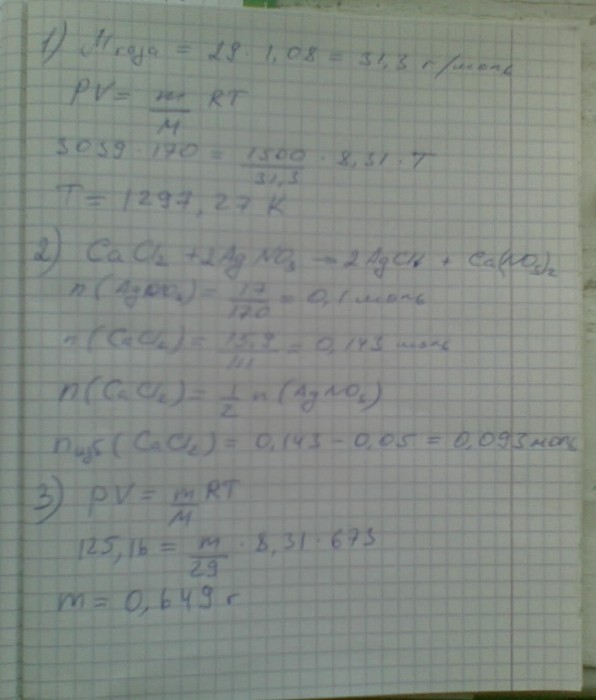 1) M газа = 29 · 1,08 = 31,3 г/моль
PV = m/M RT
3039 · 170 = 1500/31,3 · 8,31 · T
T = 1297,27 K
2) CaCl₂ + 2AgNO₃ → 2AgCl + Ca(NO₃)₂
n(AgNO₃) = 17/170 = 0,1 моль
n(CaCl₂) = 15,9/111 = 0,143 моль
n(CaCl₂) = 1/2 n(AgNO₃)
nизб(CaCl₂) = 0,143 - 0,05 = 0,093 моль
3) PV = m/M RT
125,16 = m/29 · 8,31 · 673
m = 0,649 г